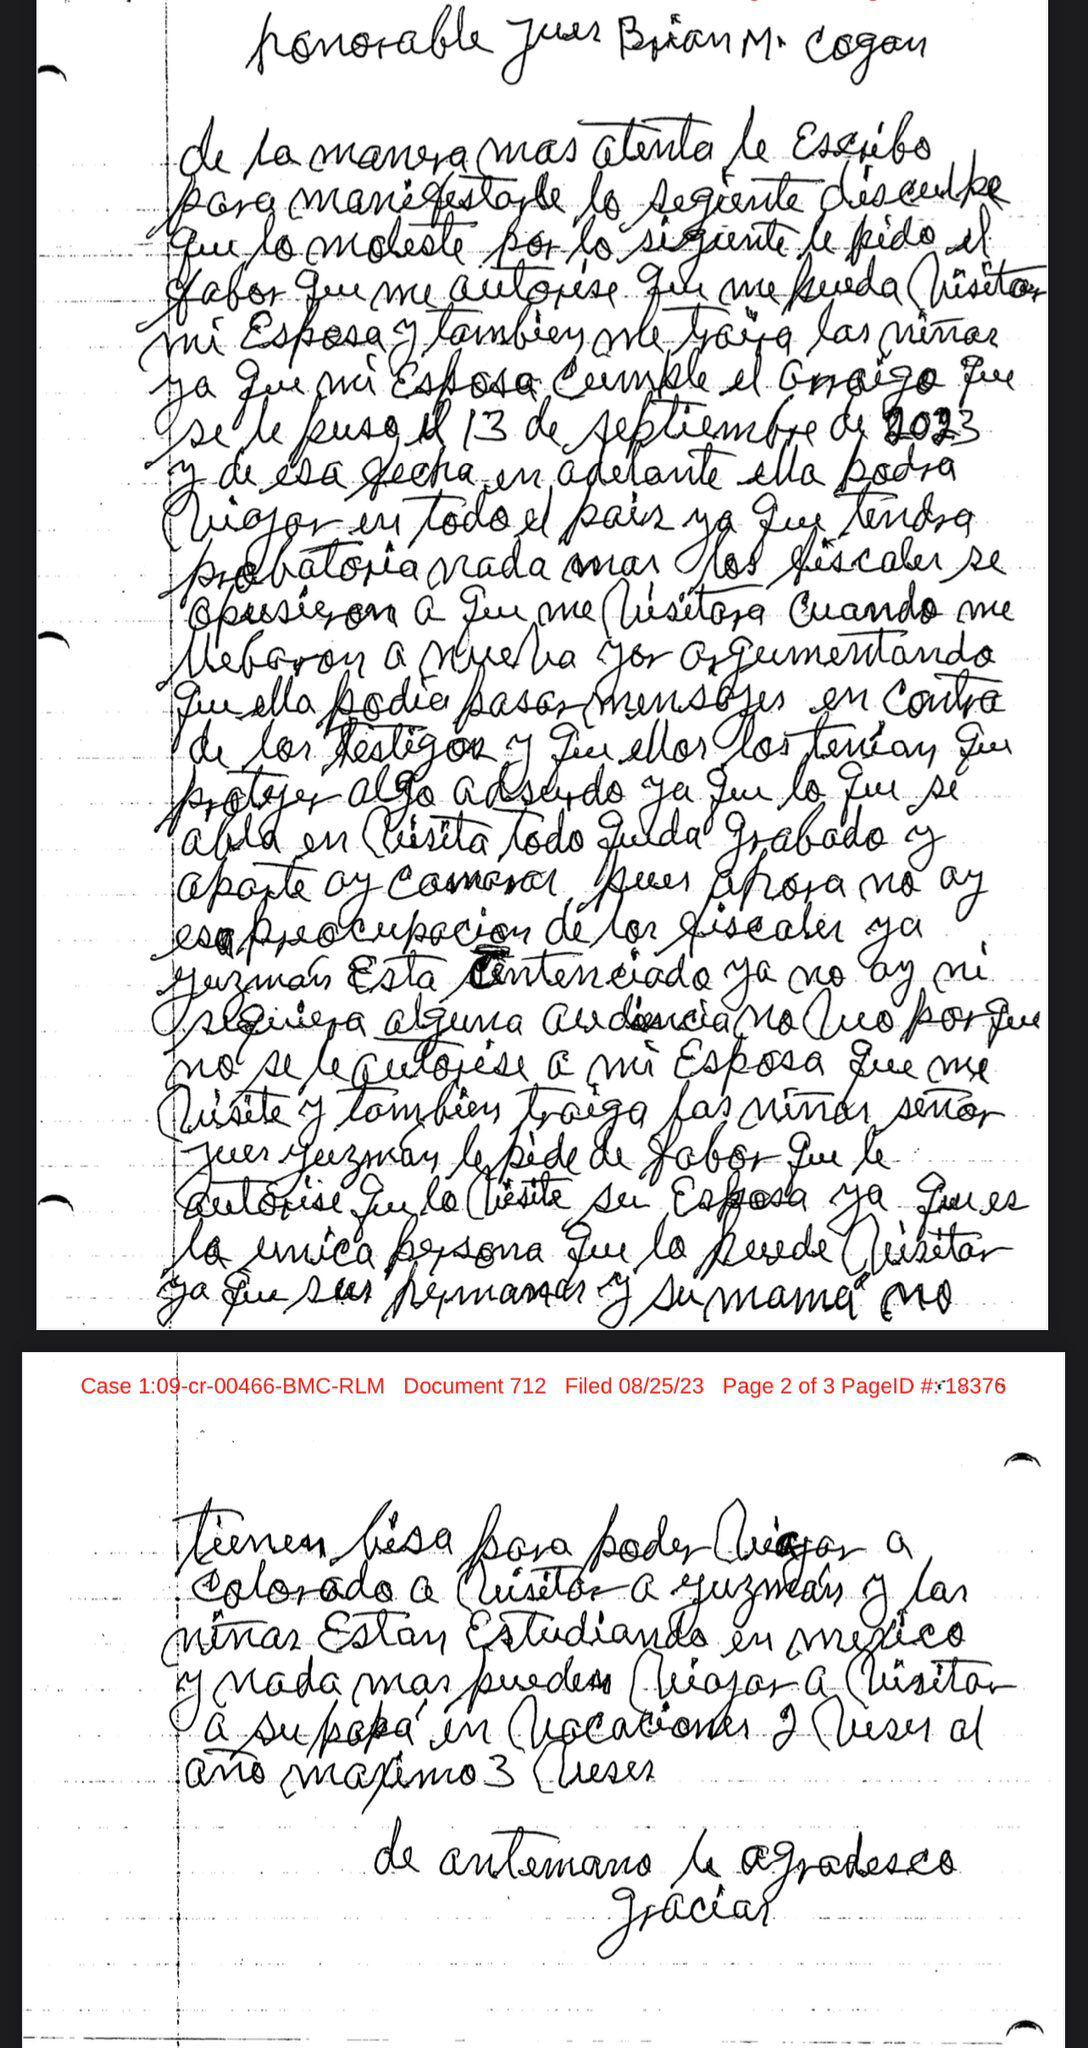 honorable Juez Brian M. Cogan
de la manera mas atenta le Escribo
para manifestarle lo segiente disculpe
que lo moleste por lo sigiente le pido el
fabor que me autorise que me pueda Visitar
mi Esposa y tambien me traiga las niñas
ya que mi Esposa Cumple el arraigo que
se le puso el 13 de septiembre de 2023
y de esa fecha en adelante ella podra
Viajar en todo el pais ya que tendra
probatoria nada mas los fiscales se
opusieron a que me Visitara cuando me
llebaron a nueva yor argumentando
que ella podia pasar mensajes en contra
de los testigos y que ellos los tenian que
protejer algo adsurdo ya que lo que se
abla en Visita todo queda grabado y
aparte ay camaras pues ahora no ay
esa preocupacion de los fiscales ya
guzmán Esta Centenciado ya no ay ni
sequiera alguna audiencia no Veo porque
no se le autorise a mi Esposa que me
Visite y tambien traiga las niñas señor
juez guzmán le pide de fabor que le
autorise que lo Visite su Esposa ya que es
la unica persona que lo puede Visitar
ya que sus hermanas y su mamá no
Case 1:09-cr-00466-BMC-RLM Document 712 Filed 08/25/23 Page 2 of 3 PageID #: 18376
tienen bisa para poder Viajar a
Colorado a Visitar a guzmán y las
niñas Estan Estudiando en mexico
y nada mas pueden Viajar a Visitar
a su papá en Vacaciones 2 Veses al
año maximo 3 Veses
de antemano le agradesco
gracias